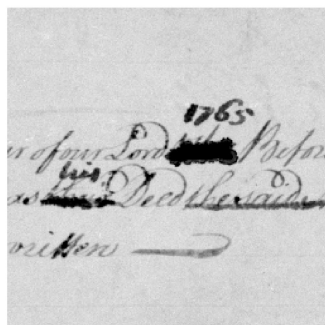 1765
er of our Lord Before
his
as Deed the said
written